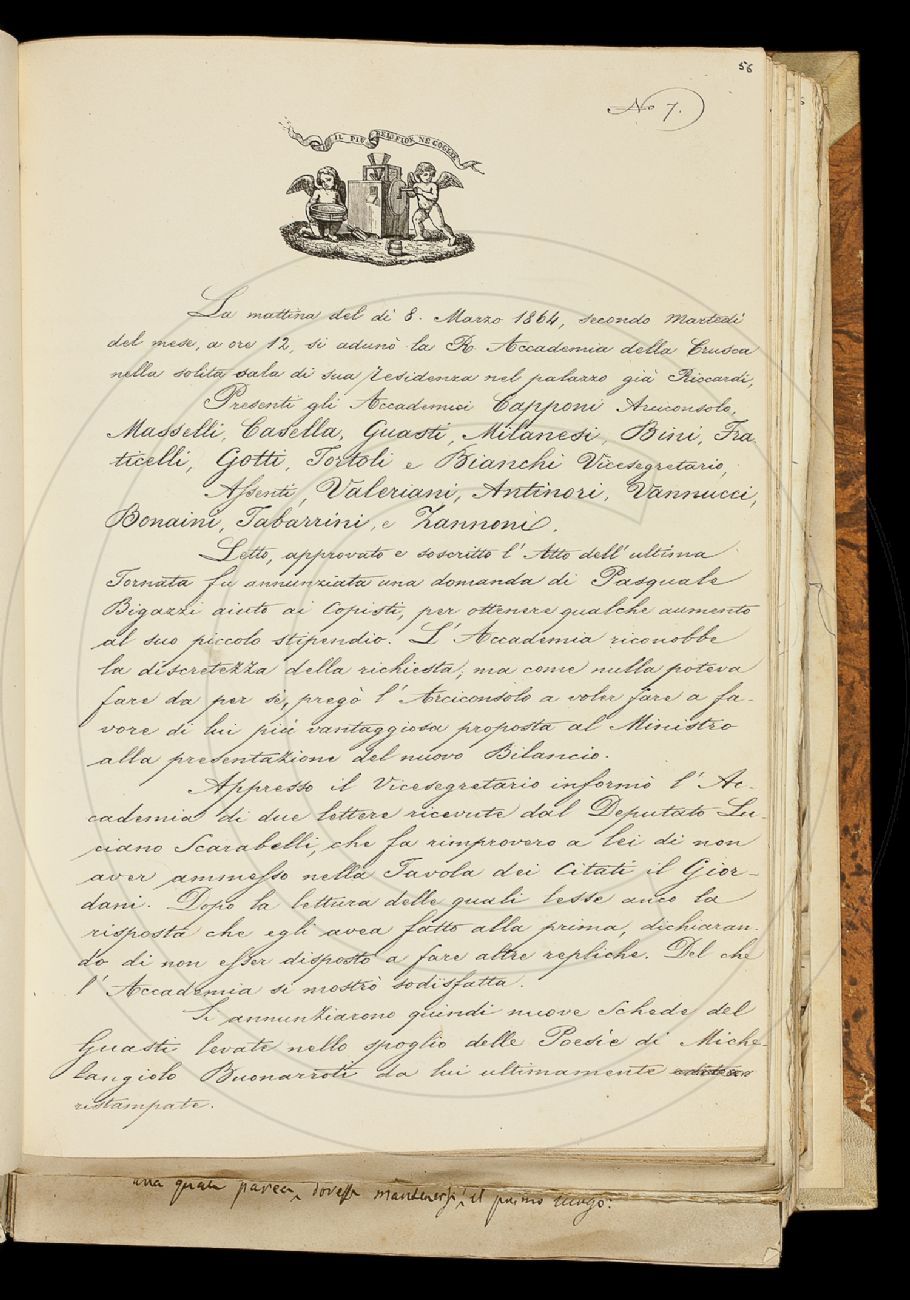 56
No 7.
IL PIÙ BEL FIOR NE COGLIE
La mattina del dì 8. Marzo 1864, secondo Martedì
del mese, a ore 12, si adunò la R. Accademia della Crusca
nella solita sala di sua residenza nel palazzo già Riccardi,
Presenti gli Accademici Capponi Arciconsolo,
Masselli, Casella, Guasti, Milanesi, Bini, Fra
ticelli, Gotti, Tortoli e Bianchi Vicesegretario,
Assenti, Valeriani, Antinori, Vannucci,
Bonaini, Tabarrini, e Zannoni.
Letto, approvato e soscritto l' Atto dell' ultima
Tornata fu annunziata una domanda di Pasquale
Bigazzi aiuto ai Copisti, per ottenere qualche aumento
al suo piccolo stipendio. L' Accademia riconobbe
la discretezza della richiesta, ma come nulla poteva
fare da per sè, pregò l' Arciconsolo a voler fare a fa-
vore di lui più vantaggiosa proposta al Ministro
alla presentazione del nuovo Bilancio.
Appresso il Vicesegretario informò l' Ac-
cademia di due lettere ricevute dal Deputato Lu-
ciano Scarabelli, che fa rimprovero a lei di non
aver ammesso nella Tavola dei Citati il Gior-
dani. Dopo la lettura delle quali lesse anco la
risposta che egli avea fatto alla prima, dichiaran-
do di non esser disposto a fare altre repliche. Del che
l' Accademia si mostrò sodisfatta.
Si annunziarono quindi nuove Schede del
Guasti levate nello spoglio delle Poesie di Miche-
langiolo Buonarroti da lui ultimamente
ristampate.
una parea, dovesse mantenersi il primo luogo.